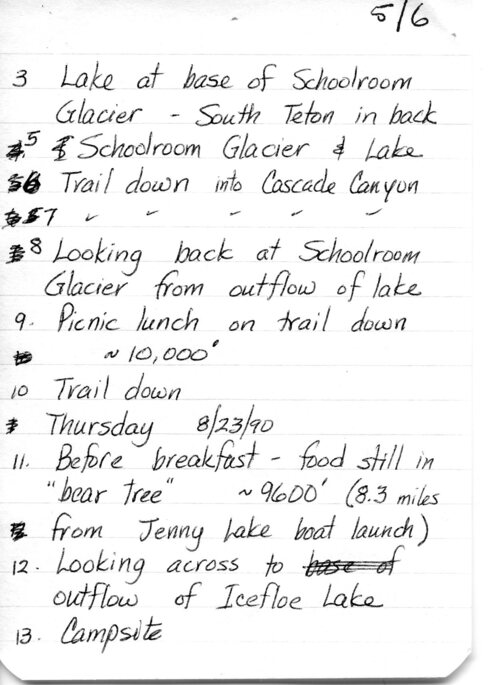 5/6
3 Lake at base of Schoolroom
Glacier - South Teton in back
5 Schoolroom Glacier & Lake
6 Trail down into Cascade Canyon
7 " " " " "
8 Looking back at Schoolroom
Glacier from outflow of lake
9. Picnic lunch on trail down
~ 10,000'
10 Trail down
Thursday 8/23/90
11. Before breakfast - food still in
"bear tree" ~ 9600' (8.3 miles
from Jenny Lake boat launch)
12. Looking across to base of
outflow of Icefloe Lake
13. Campsite